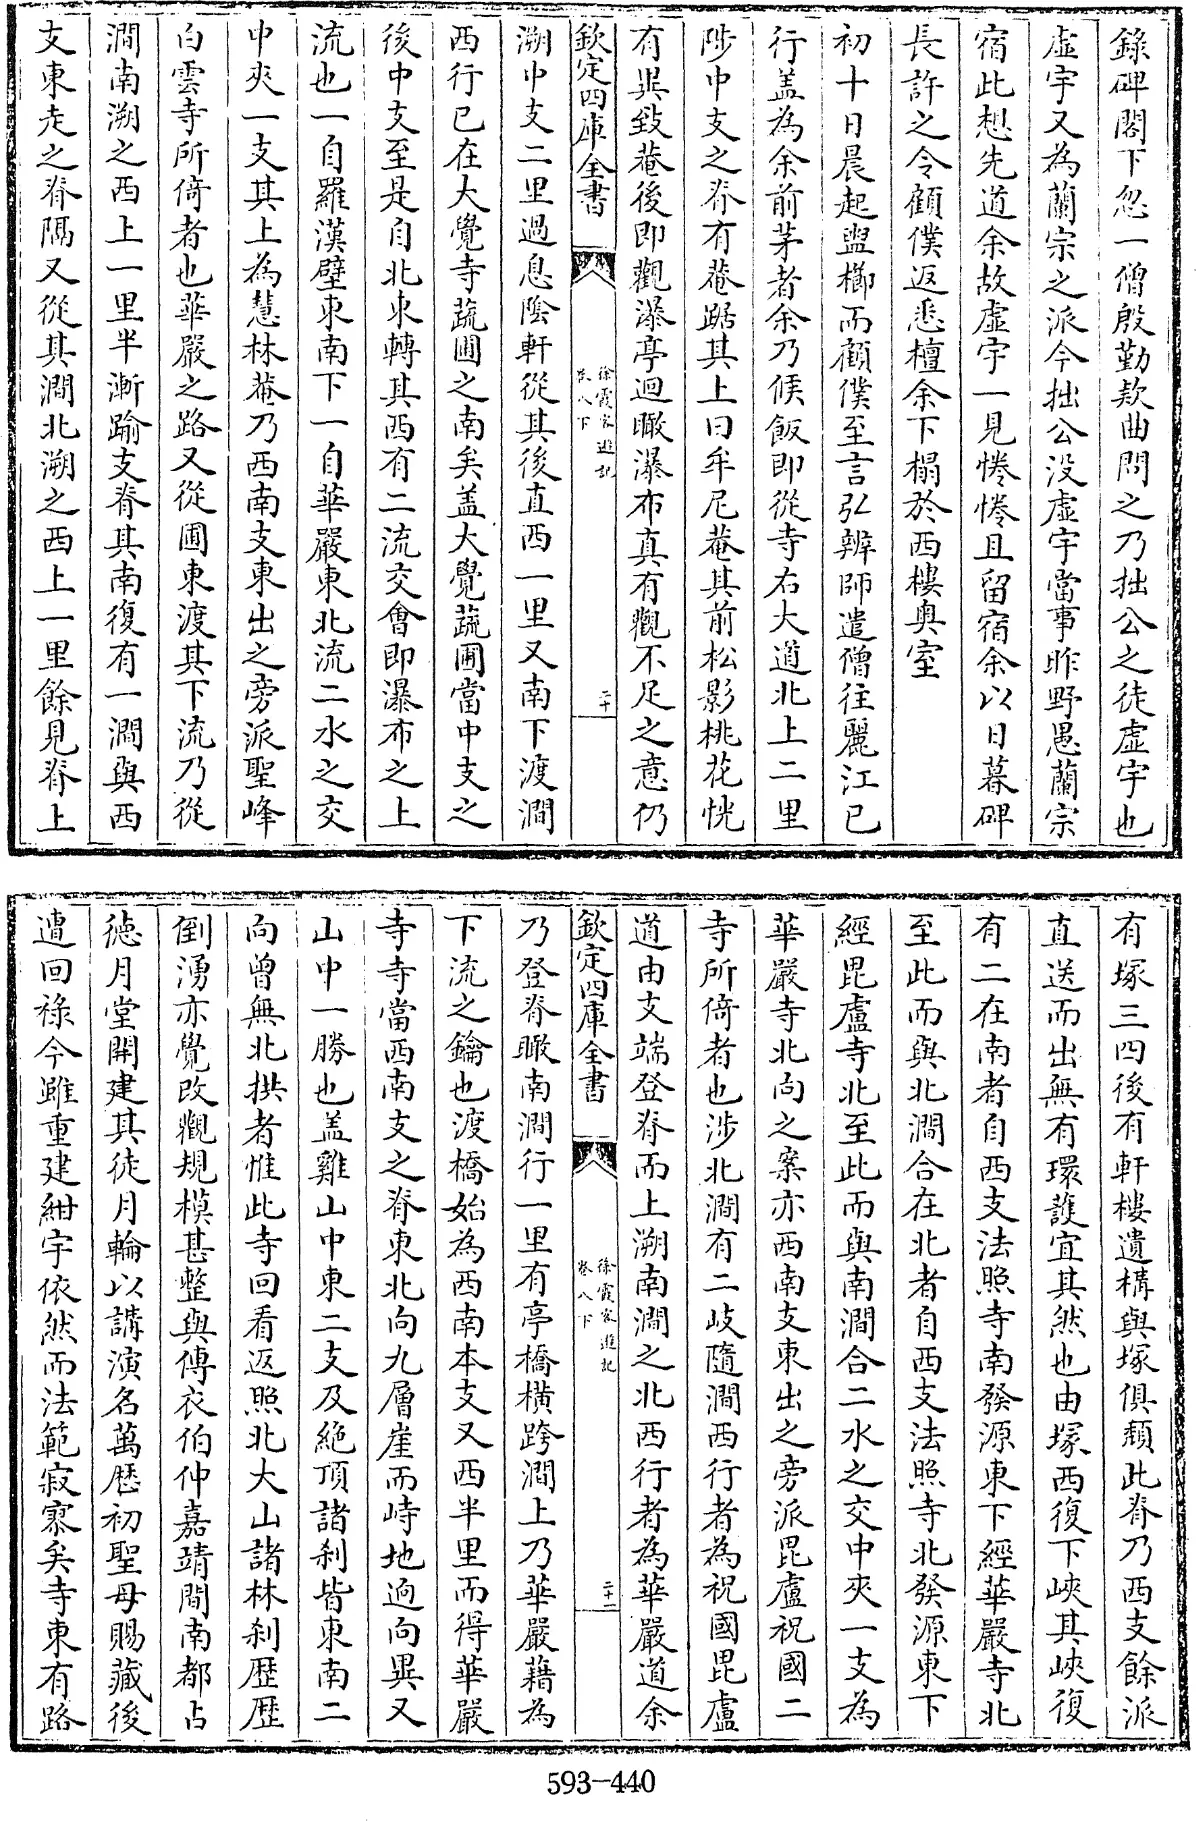 錄碑閣下忽一僧殷勤欵曲問之乃拙公之徒虛宇也
虛宇又為蘭宗之派今拙公没虛宇當事昨野愚蘭宗
宿此想先道余故虛宇一見惓惓且留宿余以日暮碑
長許之令顧僕返悉檀余下榻於西樓奥室
初十日晨起盥櫛而顧僕至言弘辨師遣僧往麗江已
行盖為余前茅者余乃候飯即從寺右大道北上二里
陟中支之脊有菴踞其上曰牟尼菴其前松影桃花恍
有異致菴後即觀瀑亭迴瞰瀑布真有觀不足之意仍
欽定四庫全書
徐霞客遊記
卷八下
二十
溯中支二里過息陰軒從其後直西一里又南下渡澗
西行已在大覺寺蔬圃之南矣盖大覺蔬圃當中支之
後中支至是自北東轉其西有二流交會即瀑布之上
流也一自羅漢壁東南下一自華嚴東北流二水之交
中夾一支其上為慧林菴乃西南支東出之旁派聖峰
白雲寺所倚者也華嚴之路又從圃東渡其下流乃從
澗南溯之西上一里半漸踰支脊其南復有一澗與西
支東走之脊隔又從其澗北溯之西上一里餘見脊上
有塚三四後有軒樓遺構與塚俱頹此脊乃西支餘派
直送而出無有環護宜其然也由塚西復下峽其峽復
有二在南者自西支法照寺南發源東下經華嚴寺北
至此而與北澗合在北者自西支法照寺北發源東下
經毘盧寺北至此而與南澗合二水之交中夾一支為
華嚴寺北向之案亦西南支東出之旁派毘盧祝國二
寺所倚者也涉北澗有二岐隨澗西行者為祝國毘盧
道由支端登脊而上溯南澗之北西行者為華嚴道余
欽定四庫全書
徐霞客遊記
卷八下
二十一
乃登脊瞰南澗行一里有亭橋橫跨澗上乃華嚴藉為
下流之鑰也渡橋始為西南本支又西半里而得華嚴
寺寺當西南支之脊東北向九層崖而峙地逈向異又
山中一勝也盖雞山中東二支及絶頂諸刹皆東南二
向曾無北拱者惟此寺回看返照北大山諸林刹歷歷
倒湧亦覺改觀規模甚整與傳衣伯仲嘉靖間南都古
德月堂開建其徒月輪以講演名萬厯初聖母賜藏後
遭回祿今雖重建紺宇依然而法範寂寥矣寺東有路
593-440